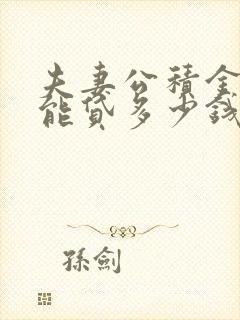 夫妻公積金
能貸多少錢
孫劍